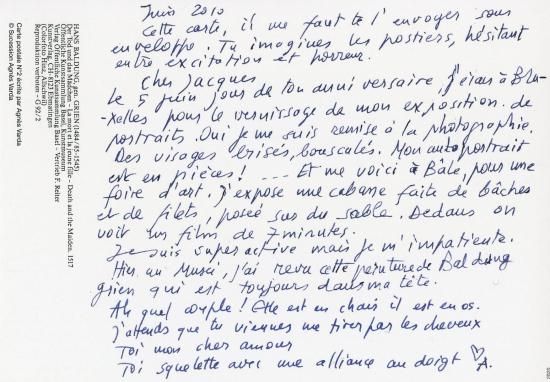 Juin 2010
Cette carte, il me faut te l'envoyer sous
enveloppe. Tu imagines les postiers, hésitant
entre excitation et horreur.
Cher Jacques,
le 5 juin jour de ton anniversaire, j'étais à Bru-
-xelles pour le vernissage de mon exposition. de
portraits. Oui je me suis remise à la photographie.
Des visages brisés, bousculés. Mon autoportrait
est en pièces! --- Et me voici à Bâle, pour une
foire d'art. J'expose une cabane faite de bâches
et de filets, posée sur du sable. Dedans on
voit un film de 7 minutes.
Je suis superactive mais je m'impatiente.
Hier au Musée, j'ai revu cette peinture de Baldung
grien qui est toujours dans ma tête.
Ah quel couple! Elle est en chair il est en os.
J'attends que tu viennes me tirer par les cheveux
Toi mon cher amour
Toi squelette avec une alliance au doigt ♡
A.
HANS BALDUNG gen. GRIEN (1484/85-1545)
Der Tod und das Mädchen – La mort et la jeune fille – Death and the Maiden. 1517
Öffentliche Kunstsammlung Basel, Kunstmuseum
Verlag Öffentliche Kunstsammlung Basel – Vertrieb F. Reiter
Kunstverlag, CH-8123 Ebmatingen
(Colorfoto Hinz, Allschwil)
Reproduktion verboten - G 92/2
Carte postale N°2 écrite par Agnès Varda
© Succession Agnès Varda